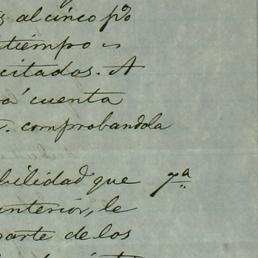 al cinco p%
tiempo
citados. A
cuenta
comprobandola
bilidad que 7ª
interior, le
parte de los